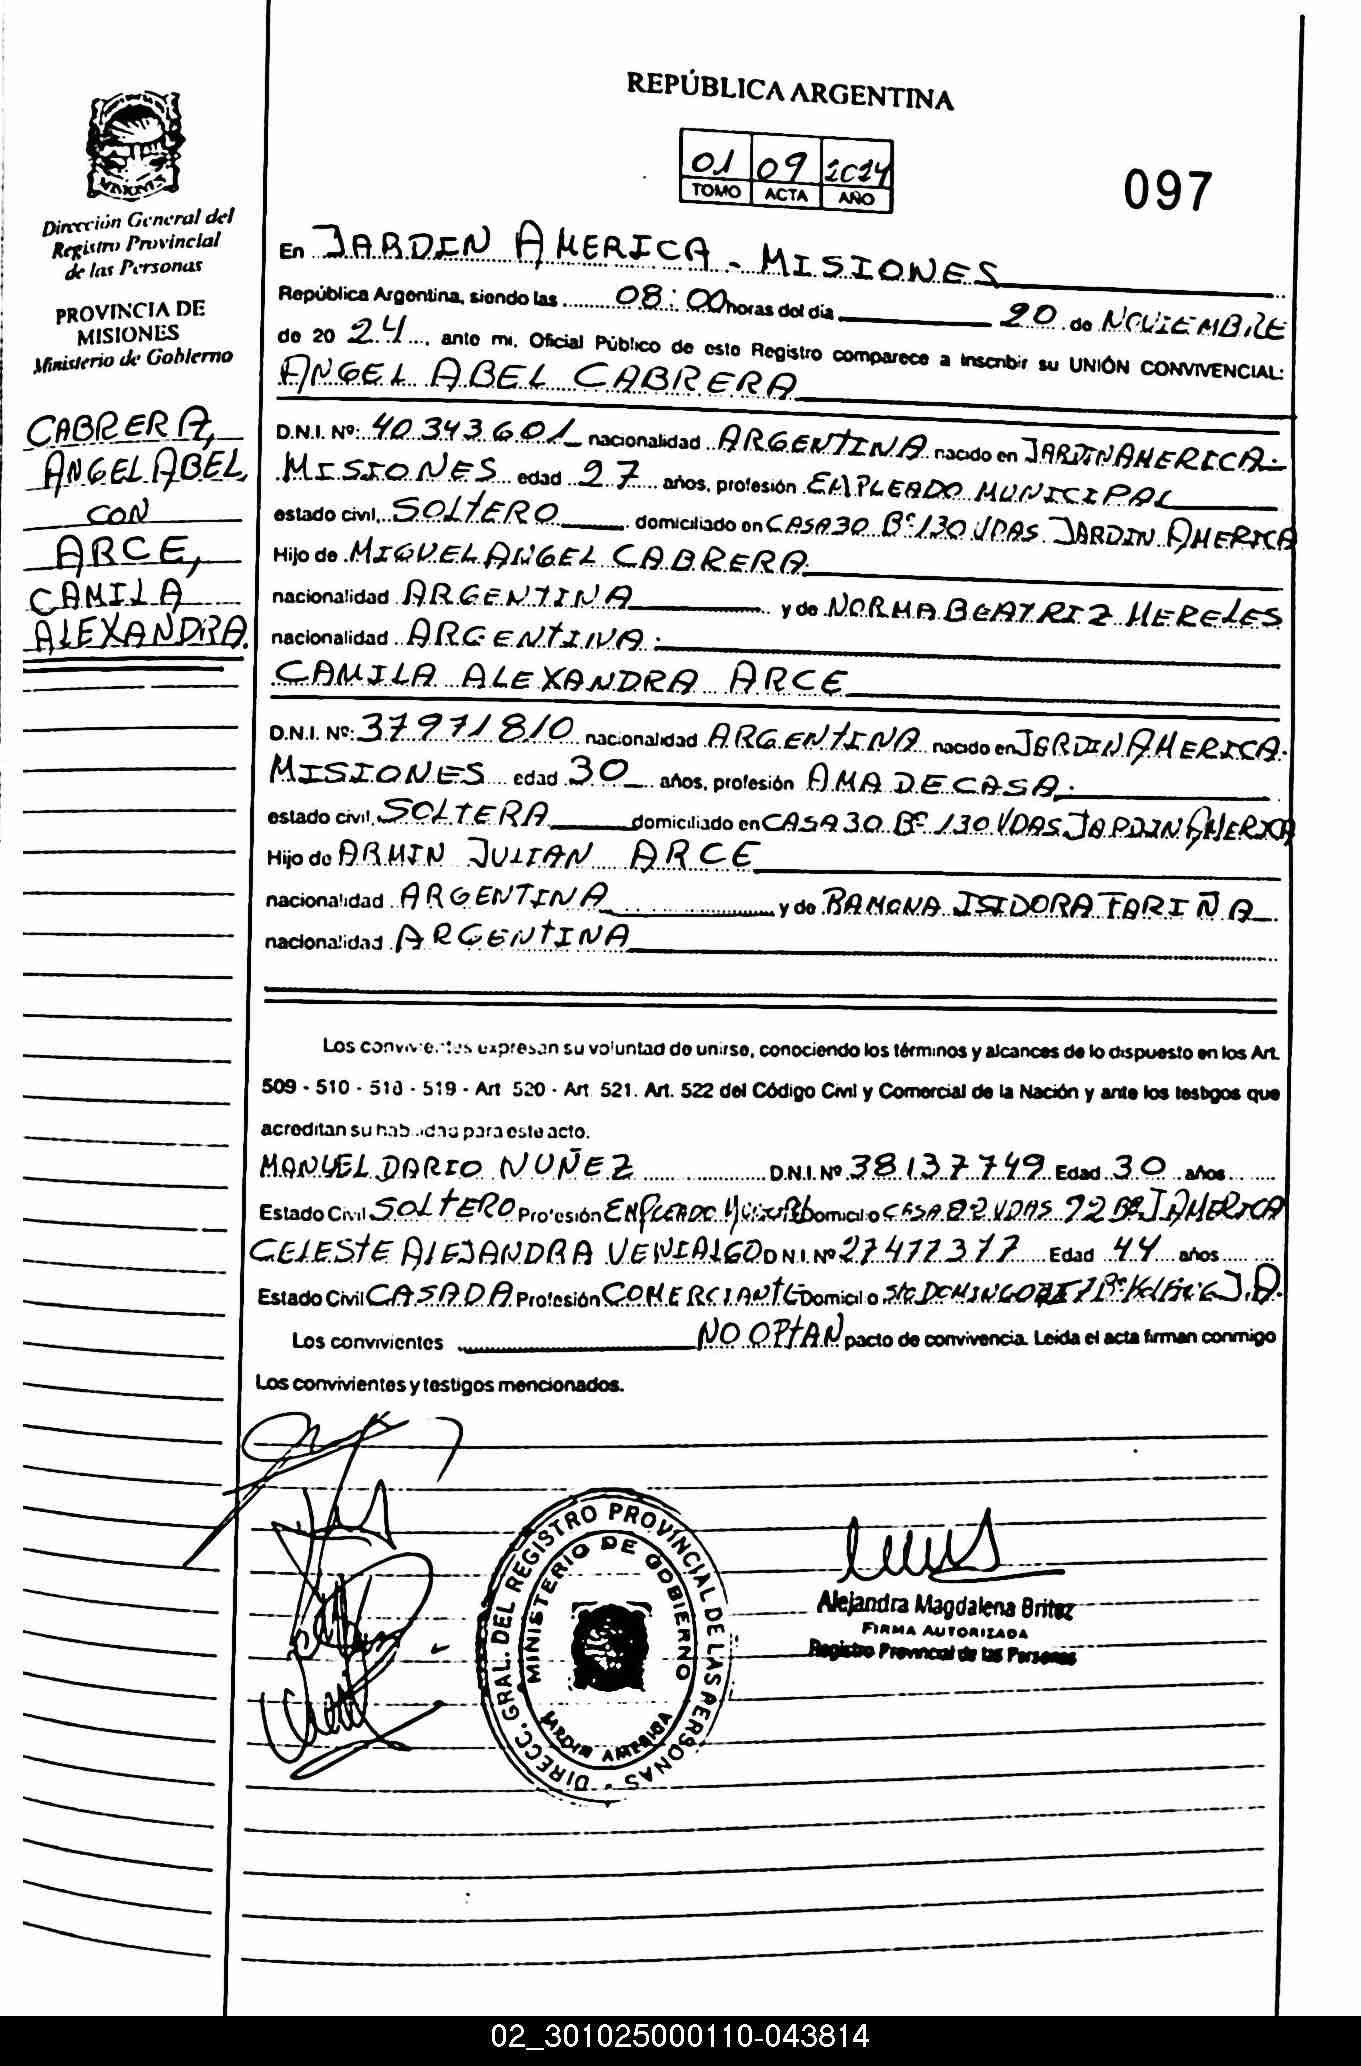 REPÚBLICA ARGENTINA
01 09 2024
TOMO ACTA AÑO
097
Dirección General del
Registro Provincial
de las Personas
PROVINCIA DE
MISIONES
Ministerio de Gobierno
CABRERA,
ANGEL ABEL
CON
ARCE,
CAMILA
ALEXANDRA.
En JARDIN AMERICA - MISIONES
República Argentina, siendo las 08:00 horas del día 20 de NOVIEMBRE
de 2024, ante mi, Oficial Público de este Registro comparece a inscribir su UNIÓN CONVIVENCIAL:
ANGEL ABEL CABRERA
D.N.I. Nº: 40343601 nacionalidad ARGENTINA nacido en JARDIN AMERICA-
MISIONES edad 27 años, profesión EMPLEADO MUNICIPAL
estado civil, SOLTERO domiciliado en CASA 30 Bº 130 VDAS JARDIN AMERICA
Hijo de MIGUEL ANGEL CABRERA
nacionalidad ARGENTINA y de NORMA BEATRIZ MERELES
nacionalidad ARGENTINA.
CAMILA ALEXANDRA ARCE
D.N.I. Nº: 37971810 nacionalidad ARGENTINA nacido en JARDIN AMERICA.
MISIONES edad 30 años, profesión AMA DE CASA.
estado civil, SOLTERA domiciliado en CASA 30 Bº 130 VDAS JARDIN AMERICA
Hijo de ARMIN JULIAN ARCE
nacionalidad ARGENTINA y de RAMONA ISIDORA FARIÑA
nacionalidad ARGENTINA
Los convivientes expresan su voluntad de unirse, conociendo los términos y alcances de lo dispuesto en los Art.
509 - 510 - 518 - 519 - Art 520 - Art 521. Art. 522 del Código Civil y Comercial de la Nación y ante los testigos que
acreditan su habilidad para este acto.
MANUEL DARIO NUÑEZ D.N.I. Nº 38137749 Edad 30 años
Estado Civil SOLTERO Profesión EMPLEADO Domicilio CASA 22 VDAS 72 Bº J. AMERICA
CELESTE ALEJANDRA VENIALGO D.N.I. Nº 27472377 Edad 44 años
Estado Civil CASADA Profesión COMERCIANTE Domicilio Sto DOMINGO J.A.
Los convivientes NO OPTAN pacto de convivencia. Leida el acta firman conmigo
Los convivientes y testigos mencionados.
DIRECC. GRAL. DEL REGISTRO PROVINCIAL DE LAS PERSONAS
MINISTERIO DE GOBIERNO
JARDIN AMERICA
Alejandra Magdalena Britez
FIRMA AUTORIZADA
Registro Provincial de las Personas
02_301025000110-043814